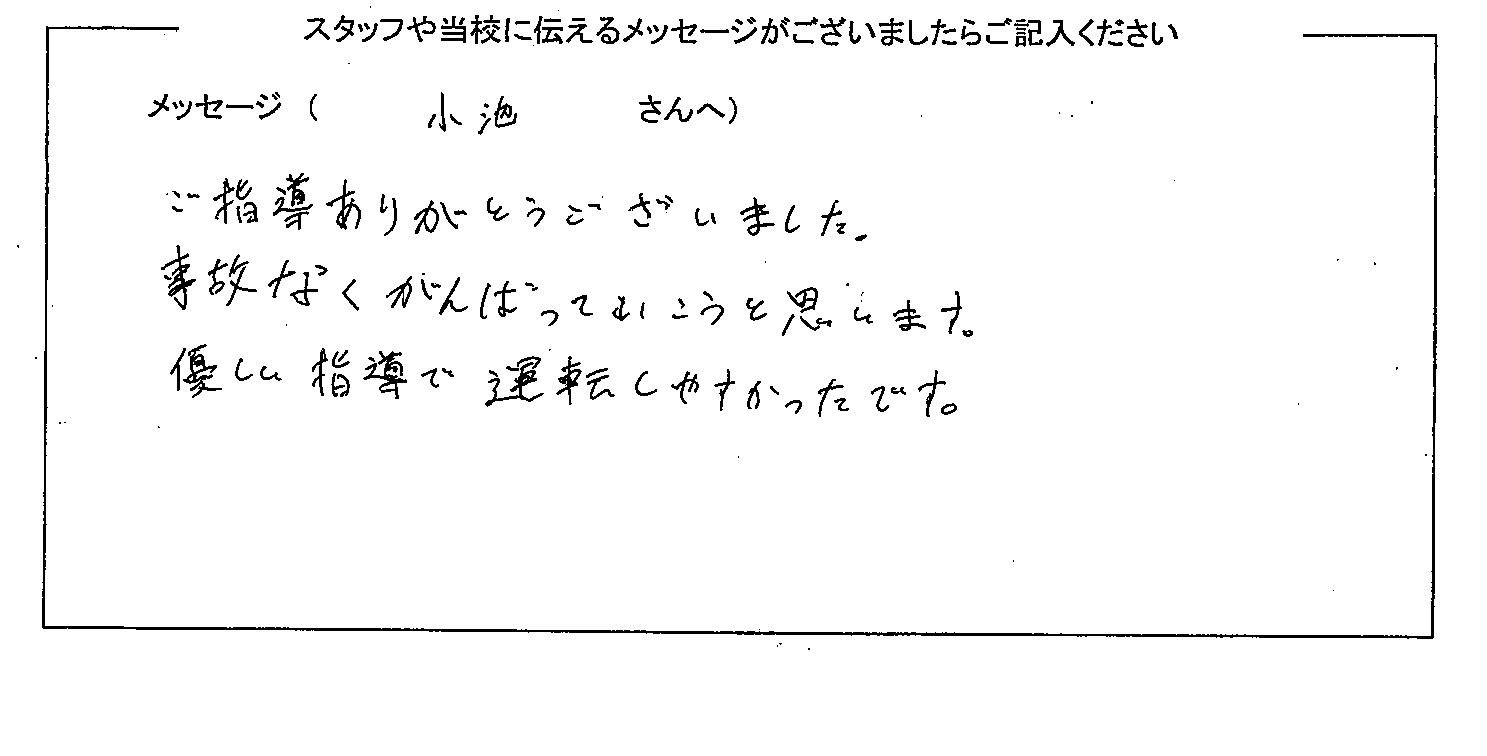 スタッフや当校に伝えるメッセージがございましたらご記入ください
メッセージ ( 小池 さんへ)
ご指導ありがとうございました。
事故なくがんばっていこうと思います。
優しい指導で運転しやすかったです。